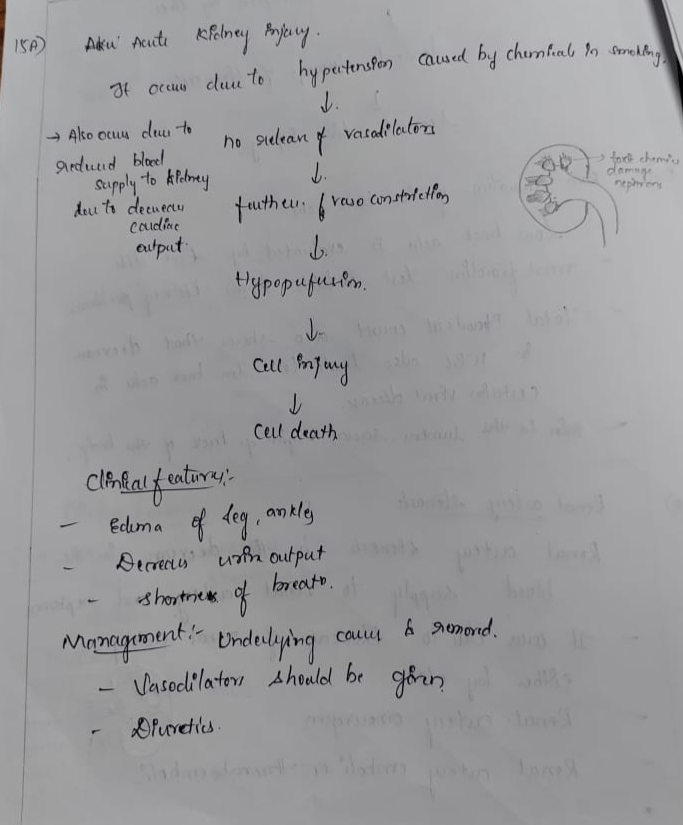 15A) Acute Kidney Injury.
It occurs due to hypertension caused by chemical in smoking.
↓
→ Also occurs due to
reduced blood
supply to kidney
due to decrease
cardiac
output.
no release of vasodilators
↓
further vasoconstriction
↓
Hypoperfusion.
↓
Cell injury
↓
Cell death
→ toxic chemic
damage
nephrons
Clinical features:-
- Edema of leg, ankles
- Decreas urin output
- Shortness of breath.
Management:- Underlying cause is removed.
- Vasodilators should be given
- Diuretics.